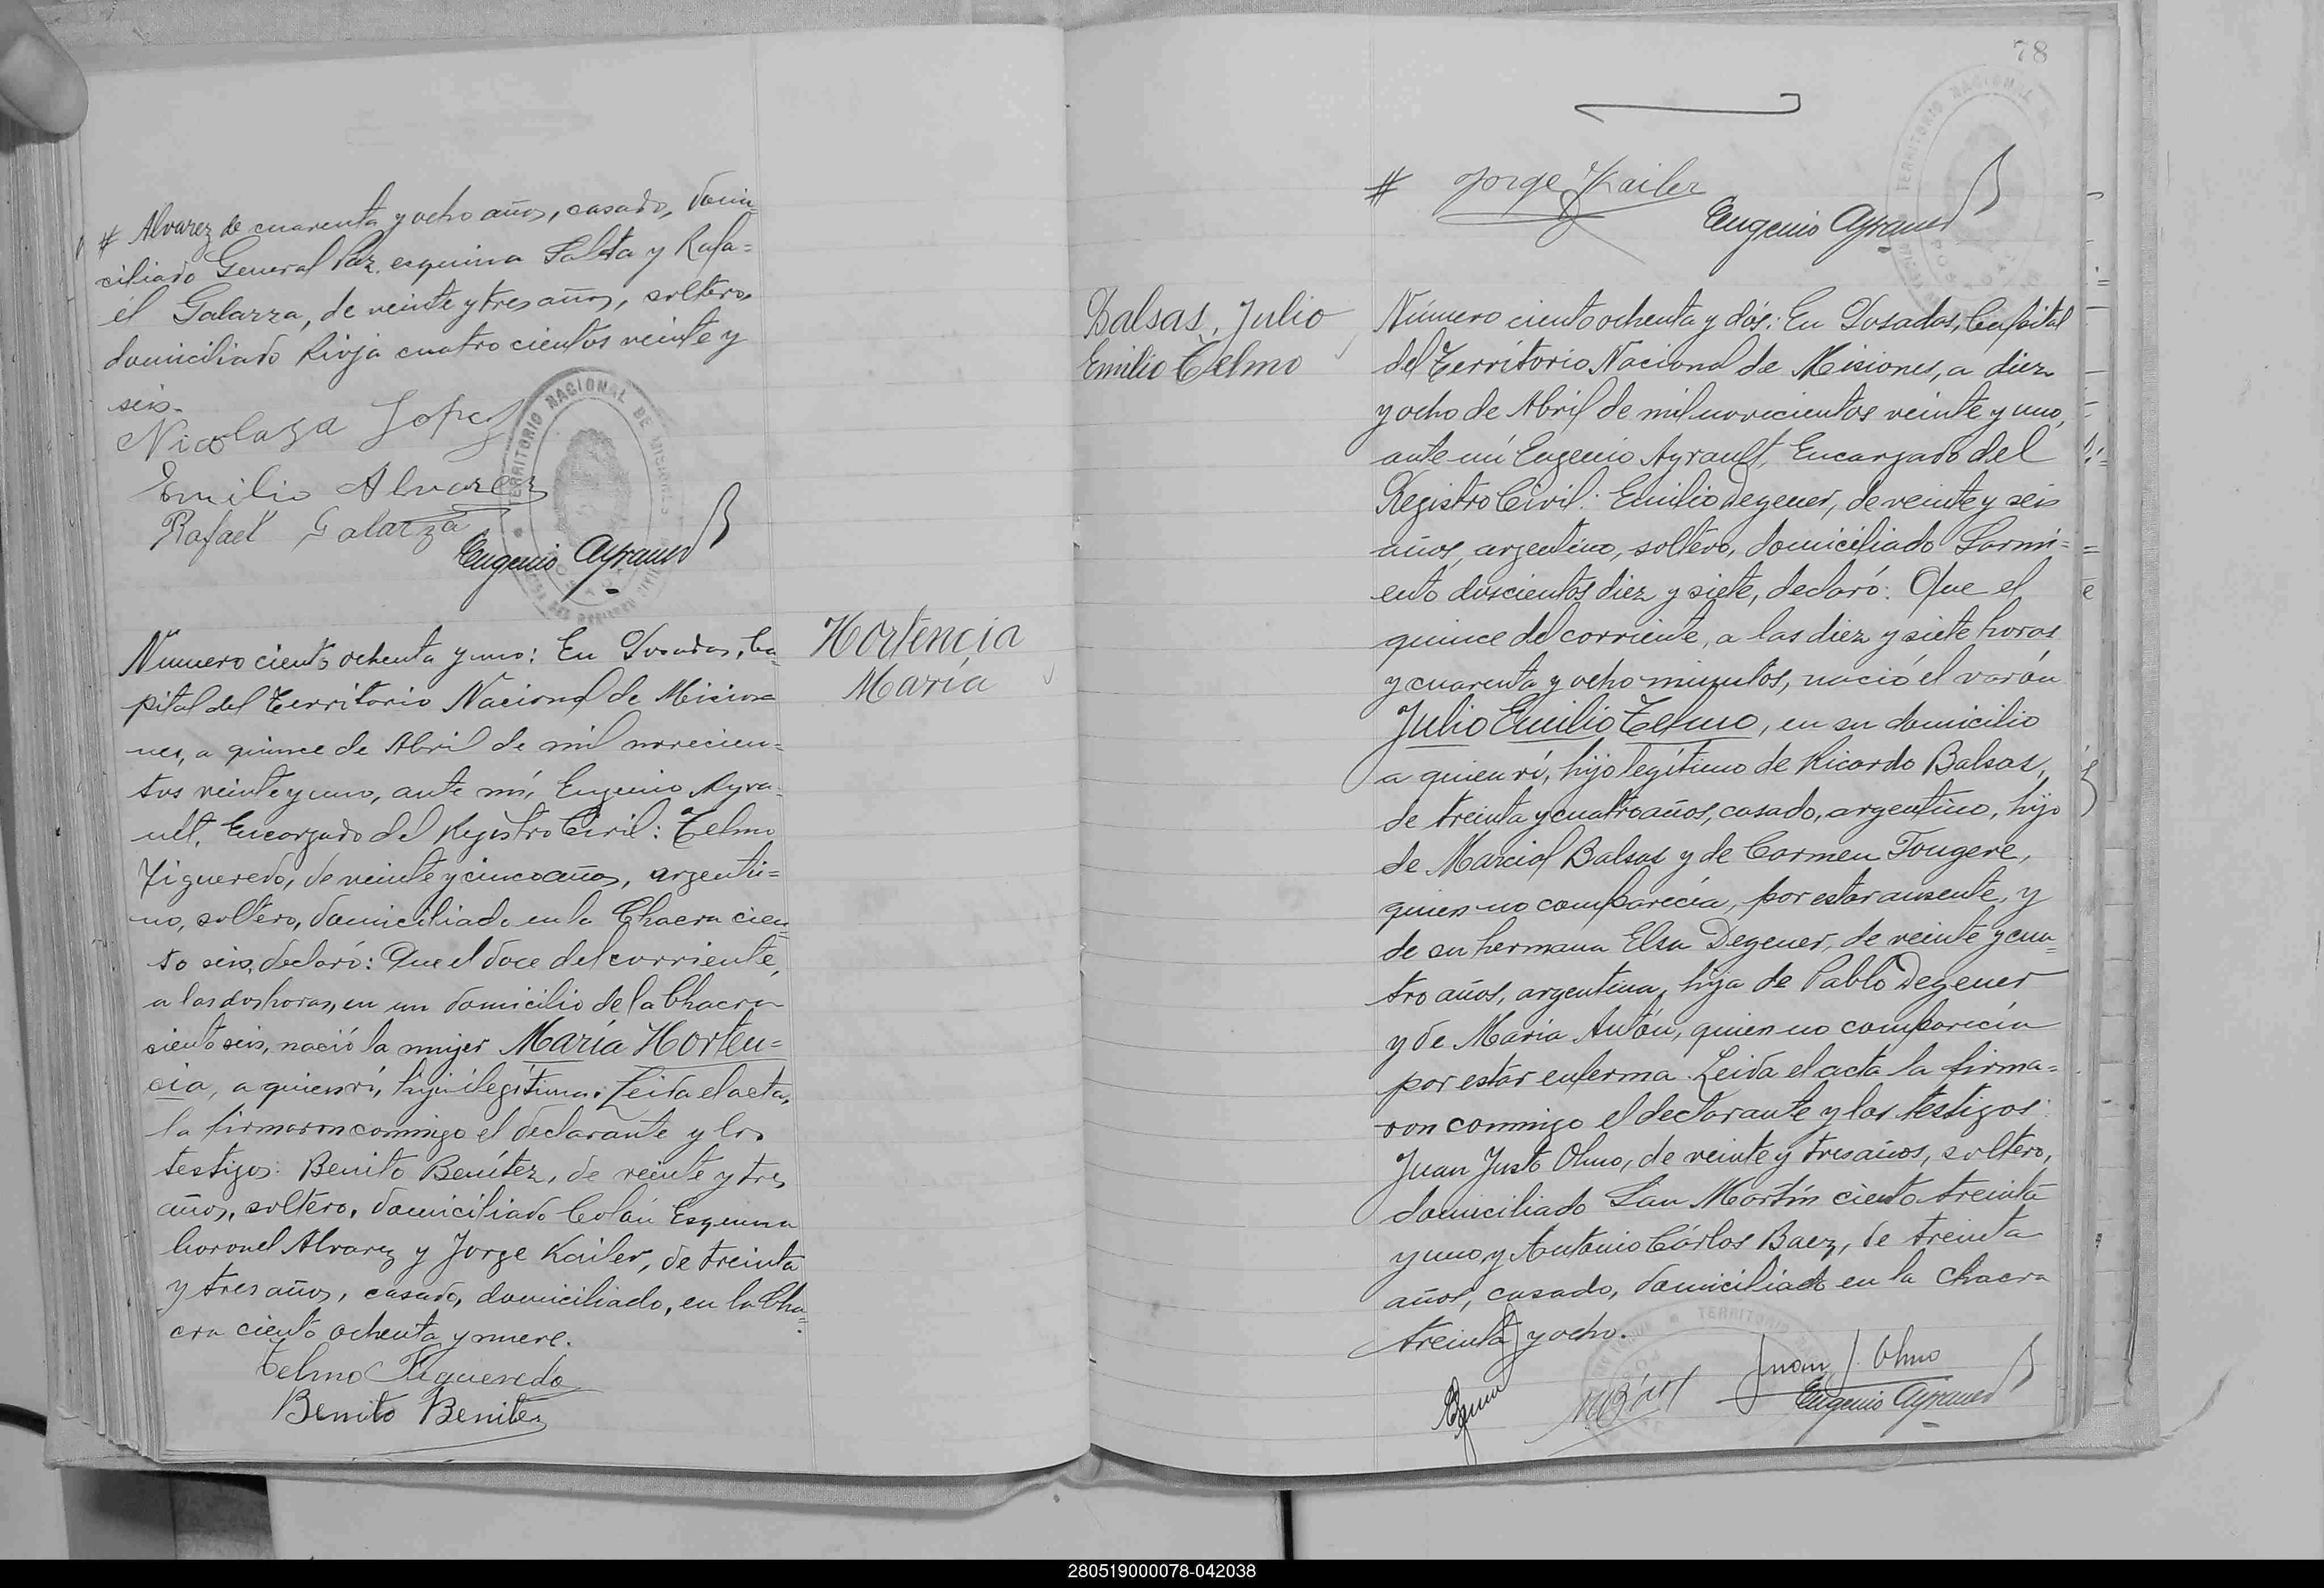 # Alvarez de cuarenta y ocho años, casado, domi-
ciliado General Paz esquina Salta y Rafa=
él Galarza, de veinte y tres años, soltero
domiciliado Rioja cuatrocientos veinte y
seis.
Nicolaza Lopez
Emilio Alvarez
Rafael Galarza
Eugenio Ayrault
TERRITORIO NACIONAL DE MISIONES
Numero ciento ochenta y uno: En Posadas, Ca-
pital del Territorio Nacional de Misio=
nes, a quince de Abril de mil novecien=
tos veinte y uno, ante mí, Eugenio Ayra-
ult, Encargado del Registro Civil: Telmo
Figueredo, de veinte y cinco años, argenti=
no, soltero, domiciliado en la Chacra cien-
to seis, declaró: Que el doce del corriente,
a las dos horas, en un domicilio de la Chacra
siento seis, nació la mujer María Horten=
cia, a quien ví, hija ilegítima. Leida el acta,
la firmaron conmigo el declarante y los
testigos: Benito Benítez, de veinte y tres
años, soltero, domiciliado Colón Esquina
Coronel Alvarez y Jorge Kailer, de treinta
y tres años, casado, domiciliado, en la Cha=
cra ciento ochenta y nueve.
Telmo Figueredo
Benito Benitez
Hortencia
María
78
# Jorge Kailer
Eugenio Ayrault
TERRITORIO NACIONAL
Balsas, Julio
Emilio Telmo
Número ciento ochenta y dós: En Posadas, Capital
del Territorio Nacional de Misiones, a diez
y ocho de Abril de mil novecientos veinte y uno,
ante mí Eugenio Ayrault, Encargado del
Registro Civil: Emilio Degener, de veinte y seis
años, argentino, soltero, domiciliado Sarmi=
ento doscientos diez y siete, declaró: Que el
quince del corriente, a las diez y siete horas
y cuarenta y ocho minutos, nació el varón
Julio Emilio Telmo, en su domicilio
a quien ví, hijo legítimo de Ricardo Balsas,
de treinta y cuatro años, casado, argentino, hijo
de Marcial Balsas y de Carmen Fougere,
quien no comparecía, por estar ausente, y
de su hermana Elsa Degener, de veinte y cua=
tro años, argentina, hija de Pablo Degener
y de Maria Antón, quien no comparecía
por estár enferma. Leida el acta la firma=
ron conmigo el declarante y los testigos:
Juan Justo Olmo, de veinte y tres años, soltero,
domiciliado San Martín ciento treinta
y uno, y Antonio Cárlos Baez, de treinta
años, casado, domiciliado en la chacra
treinta y ocho.
TERRITORIO
Juan J. Olmo
Eugenio Ayrault
280519000078-042038